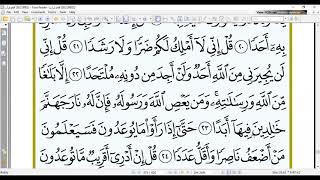 بِهِۦٓ أَحَدًا ﴿٢٠﴾ قُلْ إِنِّى لَآ أَمْلِكُ لَكُمْ ضَرًّا وَلَا رَشَدًا ﴿٢١﴾ قُلْ إِنِّى
لَن يُجِيرَنِى مِنَ ٱللَّهِ أَحَدٌ وَلَنْ أَجِدَ مِن دُونِهِۦ مُلْتَحَدًا ﴿٢٢﴾ إِلَّا بَلَـٰغًا
مِّنَ ٱللَّهِ وَرِسَـٰلَـٰتِهِۦ ۚ وَمَن يَعْصِ ٱللَّهَ وَرَسُولَهُۥ فَإِنَّ لَهُۥ نَارَ جَهَنَّمَ
خَـٰلِدِينَ فِيهَآ أَبَدًا ﴿٢٣﴾ حَتَّىٰٓ إِذَا رَأَوْا۟ مَا يُوعَدُونَ فَسَيَعْلَمُونَ
مَنْ أَضْعَفُ نَاصِرًا وَأَقَلُّ عَدَدًا ﴿٢٤﴾ قُلْ إِنْ أَدْرِىٓ أَقَرِيبٌ مَّا تُوعَدُونَ